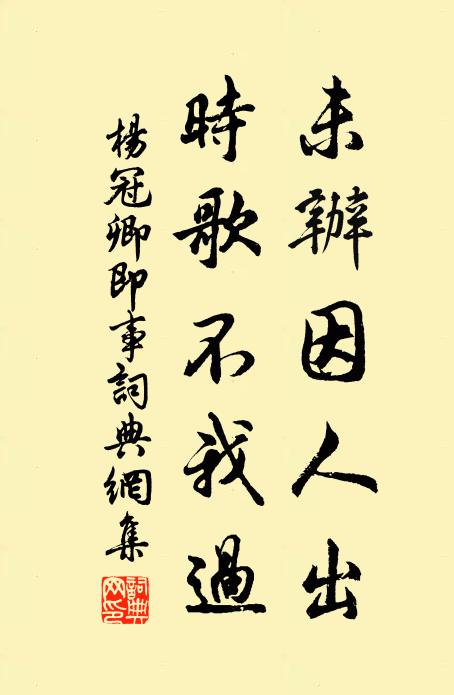 未辦因人出
時歌不我過
楊冠卿即事詞典網集
詞典網印